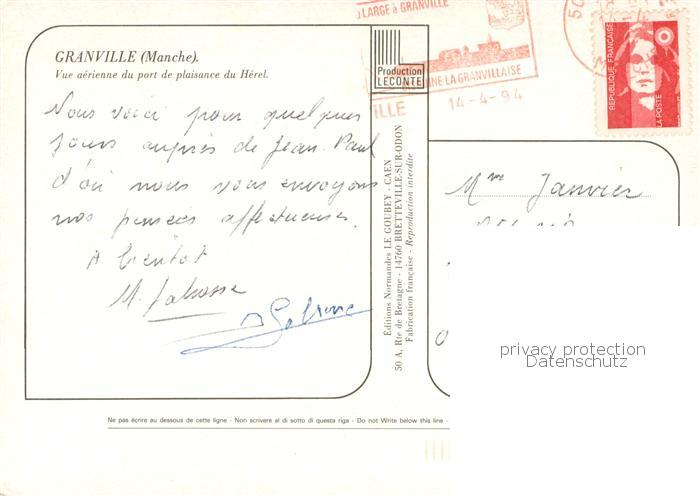 GRANVILLE (Manche).
Vue aérienne du port de plaisance du Hérel.
Nous voici pour quelques
jours auprès de Jean-Paul
d'où nous vous envoyons
nos pensées affectueuses.
A bientôt
M.
LARGE à GRANVILLE
LA GRANVILLAISE
14-4-94
Production
LECONTE
RÉPUBLIQUE FRANÇAISE
LA POSTE
Éditions Normandes LE GOUBEY - CAEN
50 A, Rte de Bretagne - 14760 BRETTEVILLE-SUR-ODON
Fabrication française - Reproduction interdite
Mme Janvier
privacy protection
Datenschutz
Ne pas écrire au dessous de cette ligne - Non scrivere al di sotto di questa riga - Do not Write below this line -